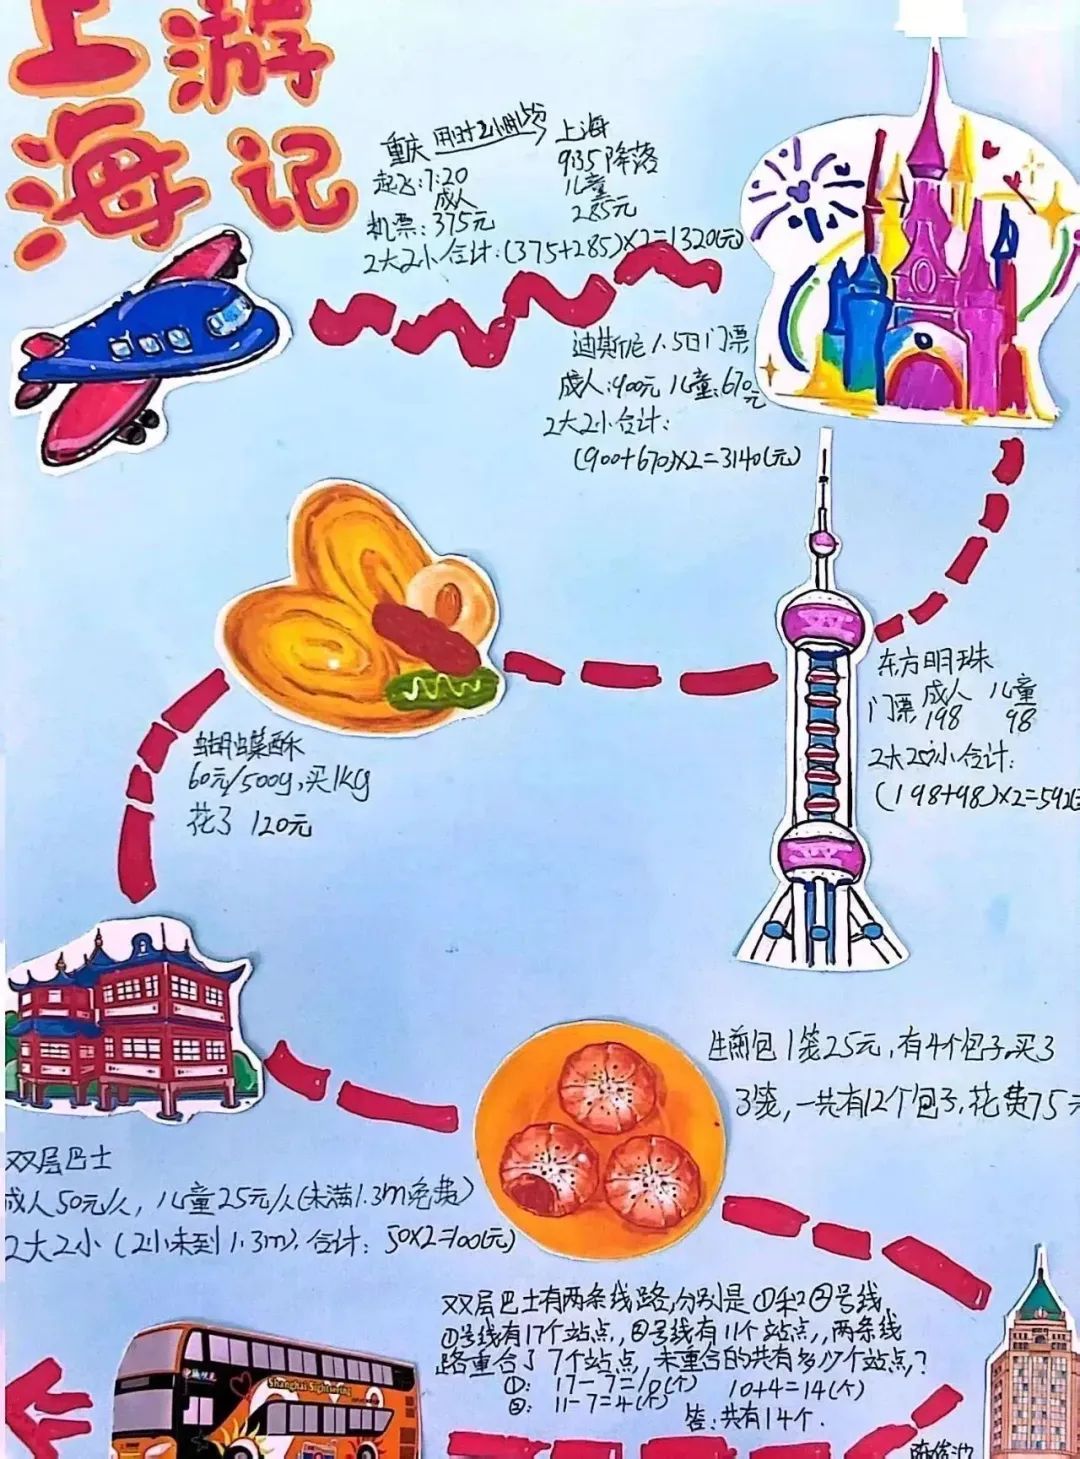 上海
游记
重庆 用时2小时15分 上海
起飞:7:20 9:35降落
成人 儿童
机票:375元 285元
2大2小合计:(375+285)×2=1320(元)
迪斯尼1.5日门票
成人:900元 儿童:670元
2大2小合计:
(900+670)×2=3140(元)
东方明珠
门票 成人 儿童
198 98
2大2小合计:
(198+98)×2=592(元
蝴蝶酥
60元/500g,买1kg
花了 120元
生煎包1笼25元,有4个包子.买3
3笼,一共有12个包子,花费75元
双层巴士
成人50元/人,儿童25元/人(未满1.3m免费)
2大2小(2小未到1.3m),合计:50×2=100(元)
双层巴士有两条线路,分别是①和②号线,
①号线有17个站点,②号线有11个站点,两条线
路重合了7个站点,未重合的共有多少个站点?
①: 17-7=10(个) 10+4=14(个)
②: 11-7=4(个)
答:共有14个.
Shanghai Sightseeing